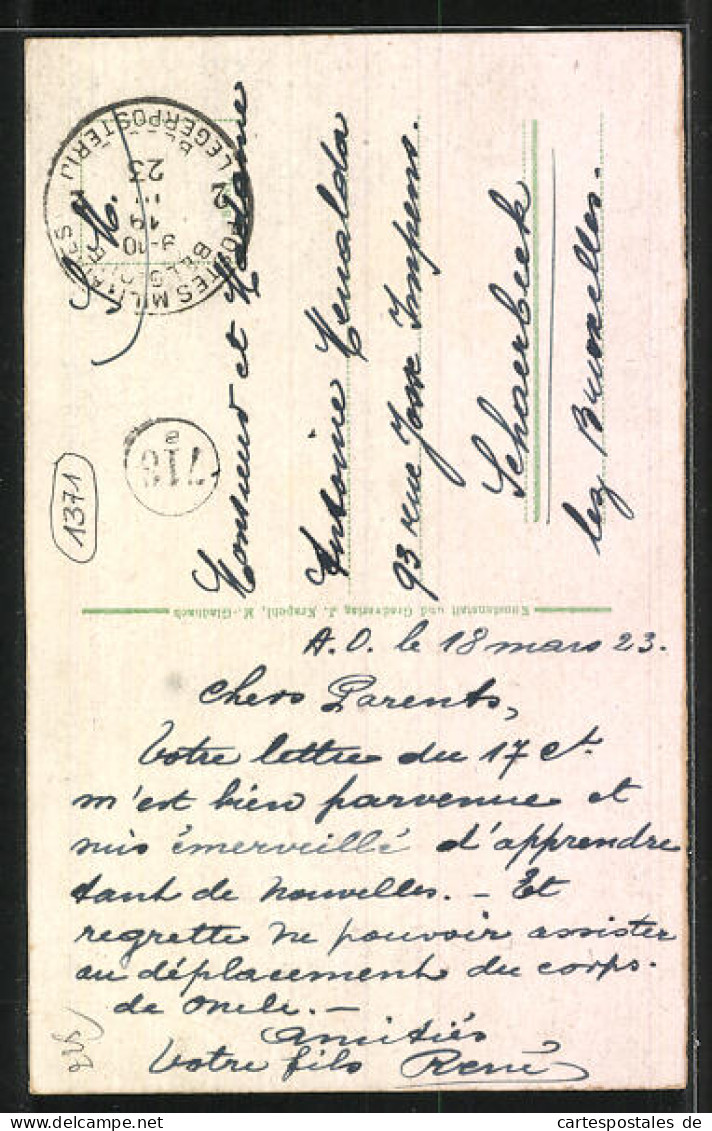 S. M.
POSTES MILITAIRES
BELGIQUE
9-10
19
III
23
2 LEGERPOSTERIJ 2
718
a
1371
Monsieur et Madame
Antoine Menalda
93 rue Josse Impens.
Schaerbeek
lez Bruxelles.
Kunstanstalt und Grußverlag J. Krapohl, M.-Gladbach
A.O. le 18 mars 23.
Chers Parents,
Votre lettre du 17 ct
m'est bien parvenue et
suis émerveillé d'apprendre
tant de nouvelles. - Et
regrette ne pouvoir assister
au déplacement du corps.
de oncle. -
Amitiés
Votre fils René
cartespostales.de
cartespostales.de